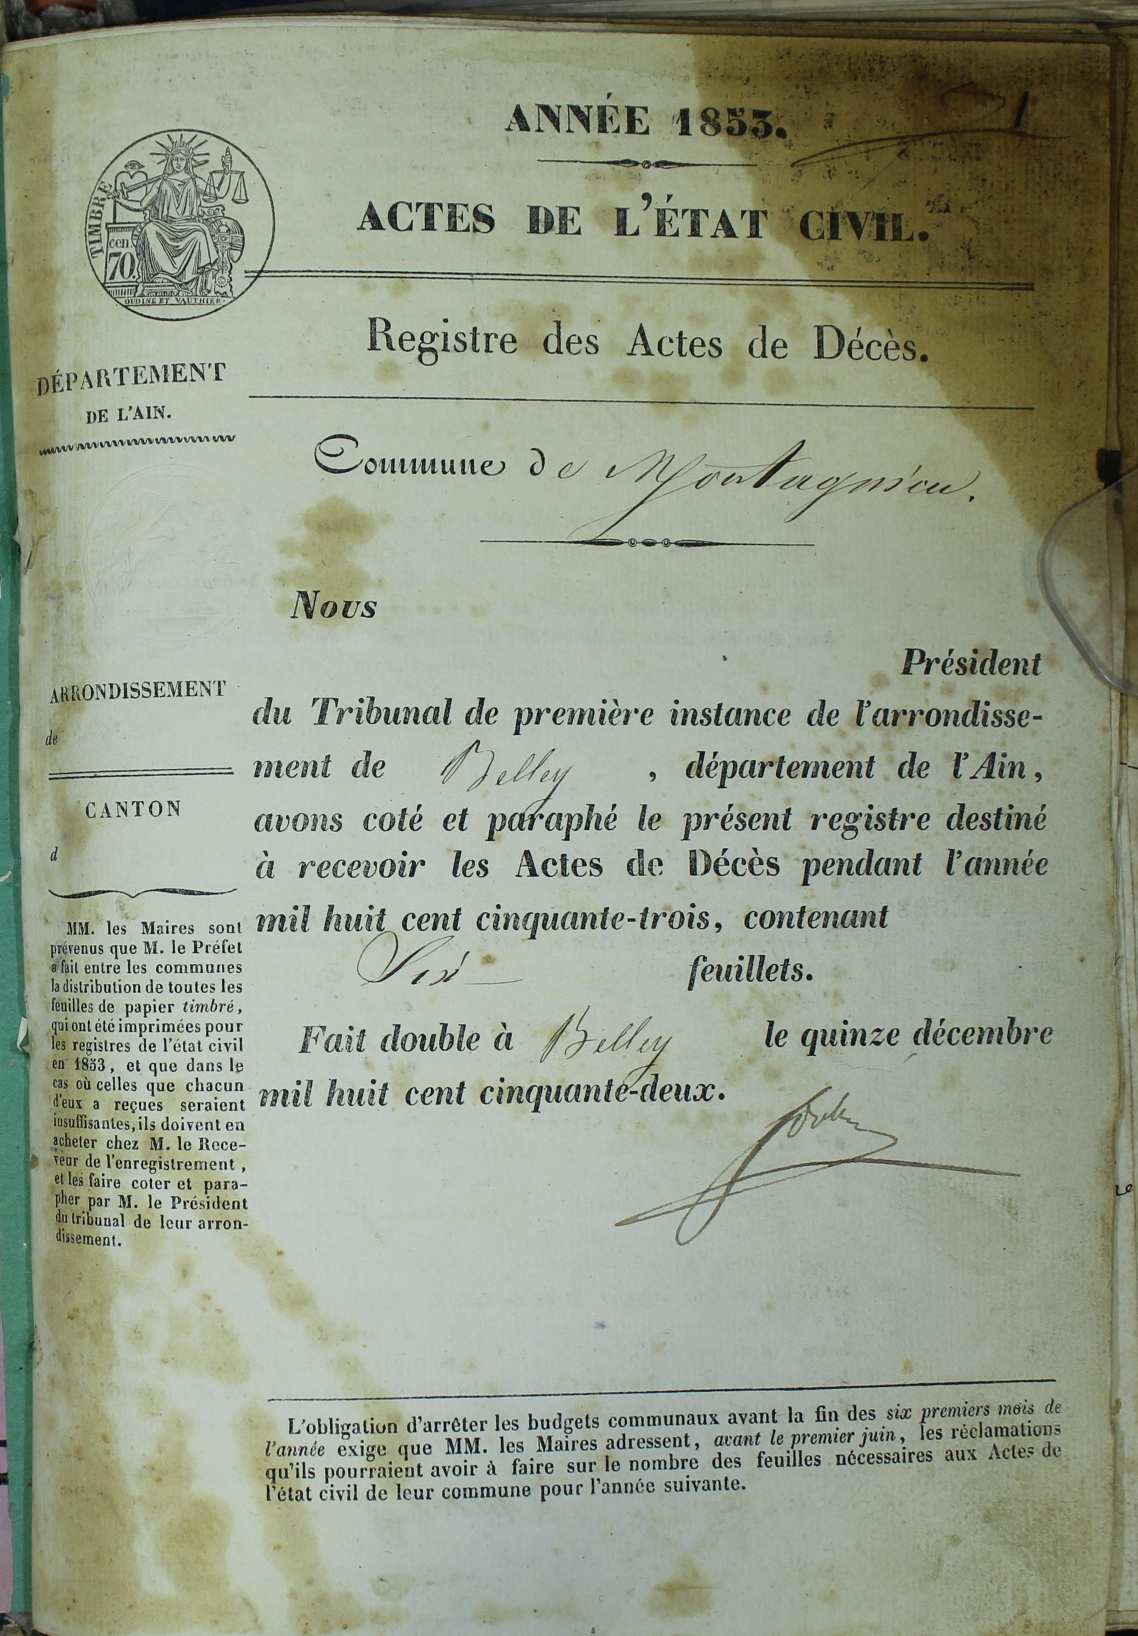 1
ANNÉE 1853.
ACTES DE L'ÉTAT CIVIL.
TIMBRE
cen
70
OUDINE ET VAUTHIER
Registre des Actes de Décès.
DÉPARTEMENT
DE L'AIN.
Commune de Montagnieu.
Nous
Président
du Tribunal de première instance de l'arrondisse-
ment de Belley, département de l'Ain,
avons coté et paraphé le présent registre destiné
à recevoir les Actes de Décès pendant l'année
mil huit cent cinquante-trois, contenant
Six feuillets.
Fait double à Belley le quinze décembre
mil huit cent cinquante-deux.
ARRONDISSEMENT
de
CANTON
d
MM. les Maires sont
prévenus que M. le Préfet
a fait entre les communes
la distribution de toutes les
feuilles de papier timbré,
qui ont été imprimées pour
les registres de l'état civil
en 1853, et que dans le
cas où celles que chacun
d'eux a reçues seraient
insuffisantes, ils doivent en
acheter chez M. le Rece-
veur de l'enregistrement,
et les faire coter et para-
pher par M. le Président
du tribunal de leur arron-
dissement.
L'obligation d'arrêter les budgets communaux avant la fin des six premiers mois de
l'année exige que MM. les Maires adressent, avant le premier juin, les réclamations
qu'ils pourraient avoir à faire sur le nombre des feuilles nécessaires aux Actes de
l'état civil de leur commune pour l'année suivante.